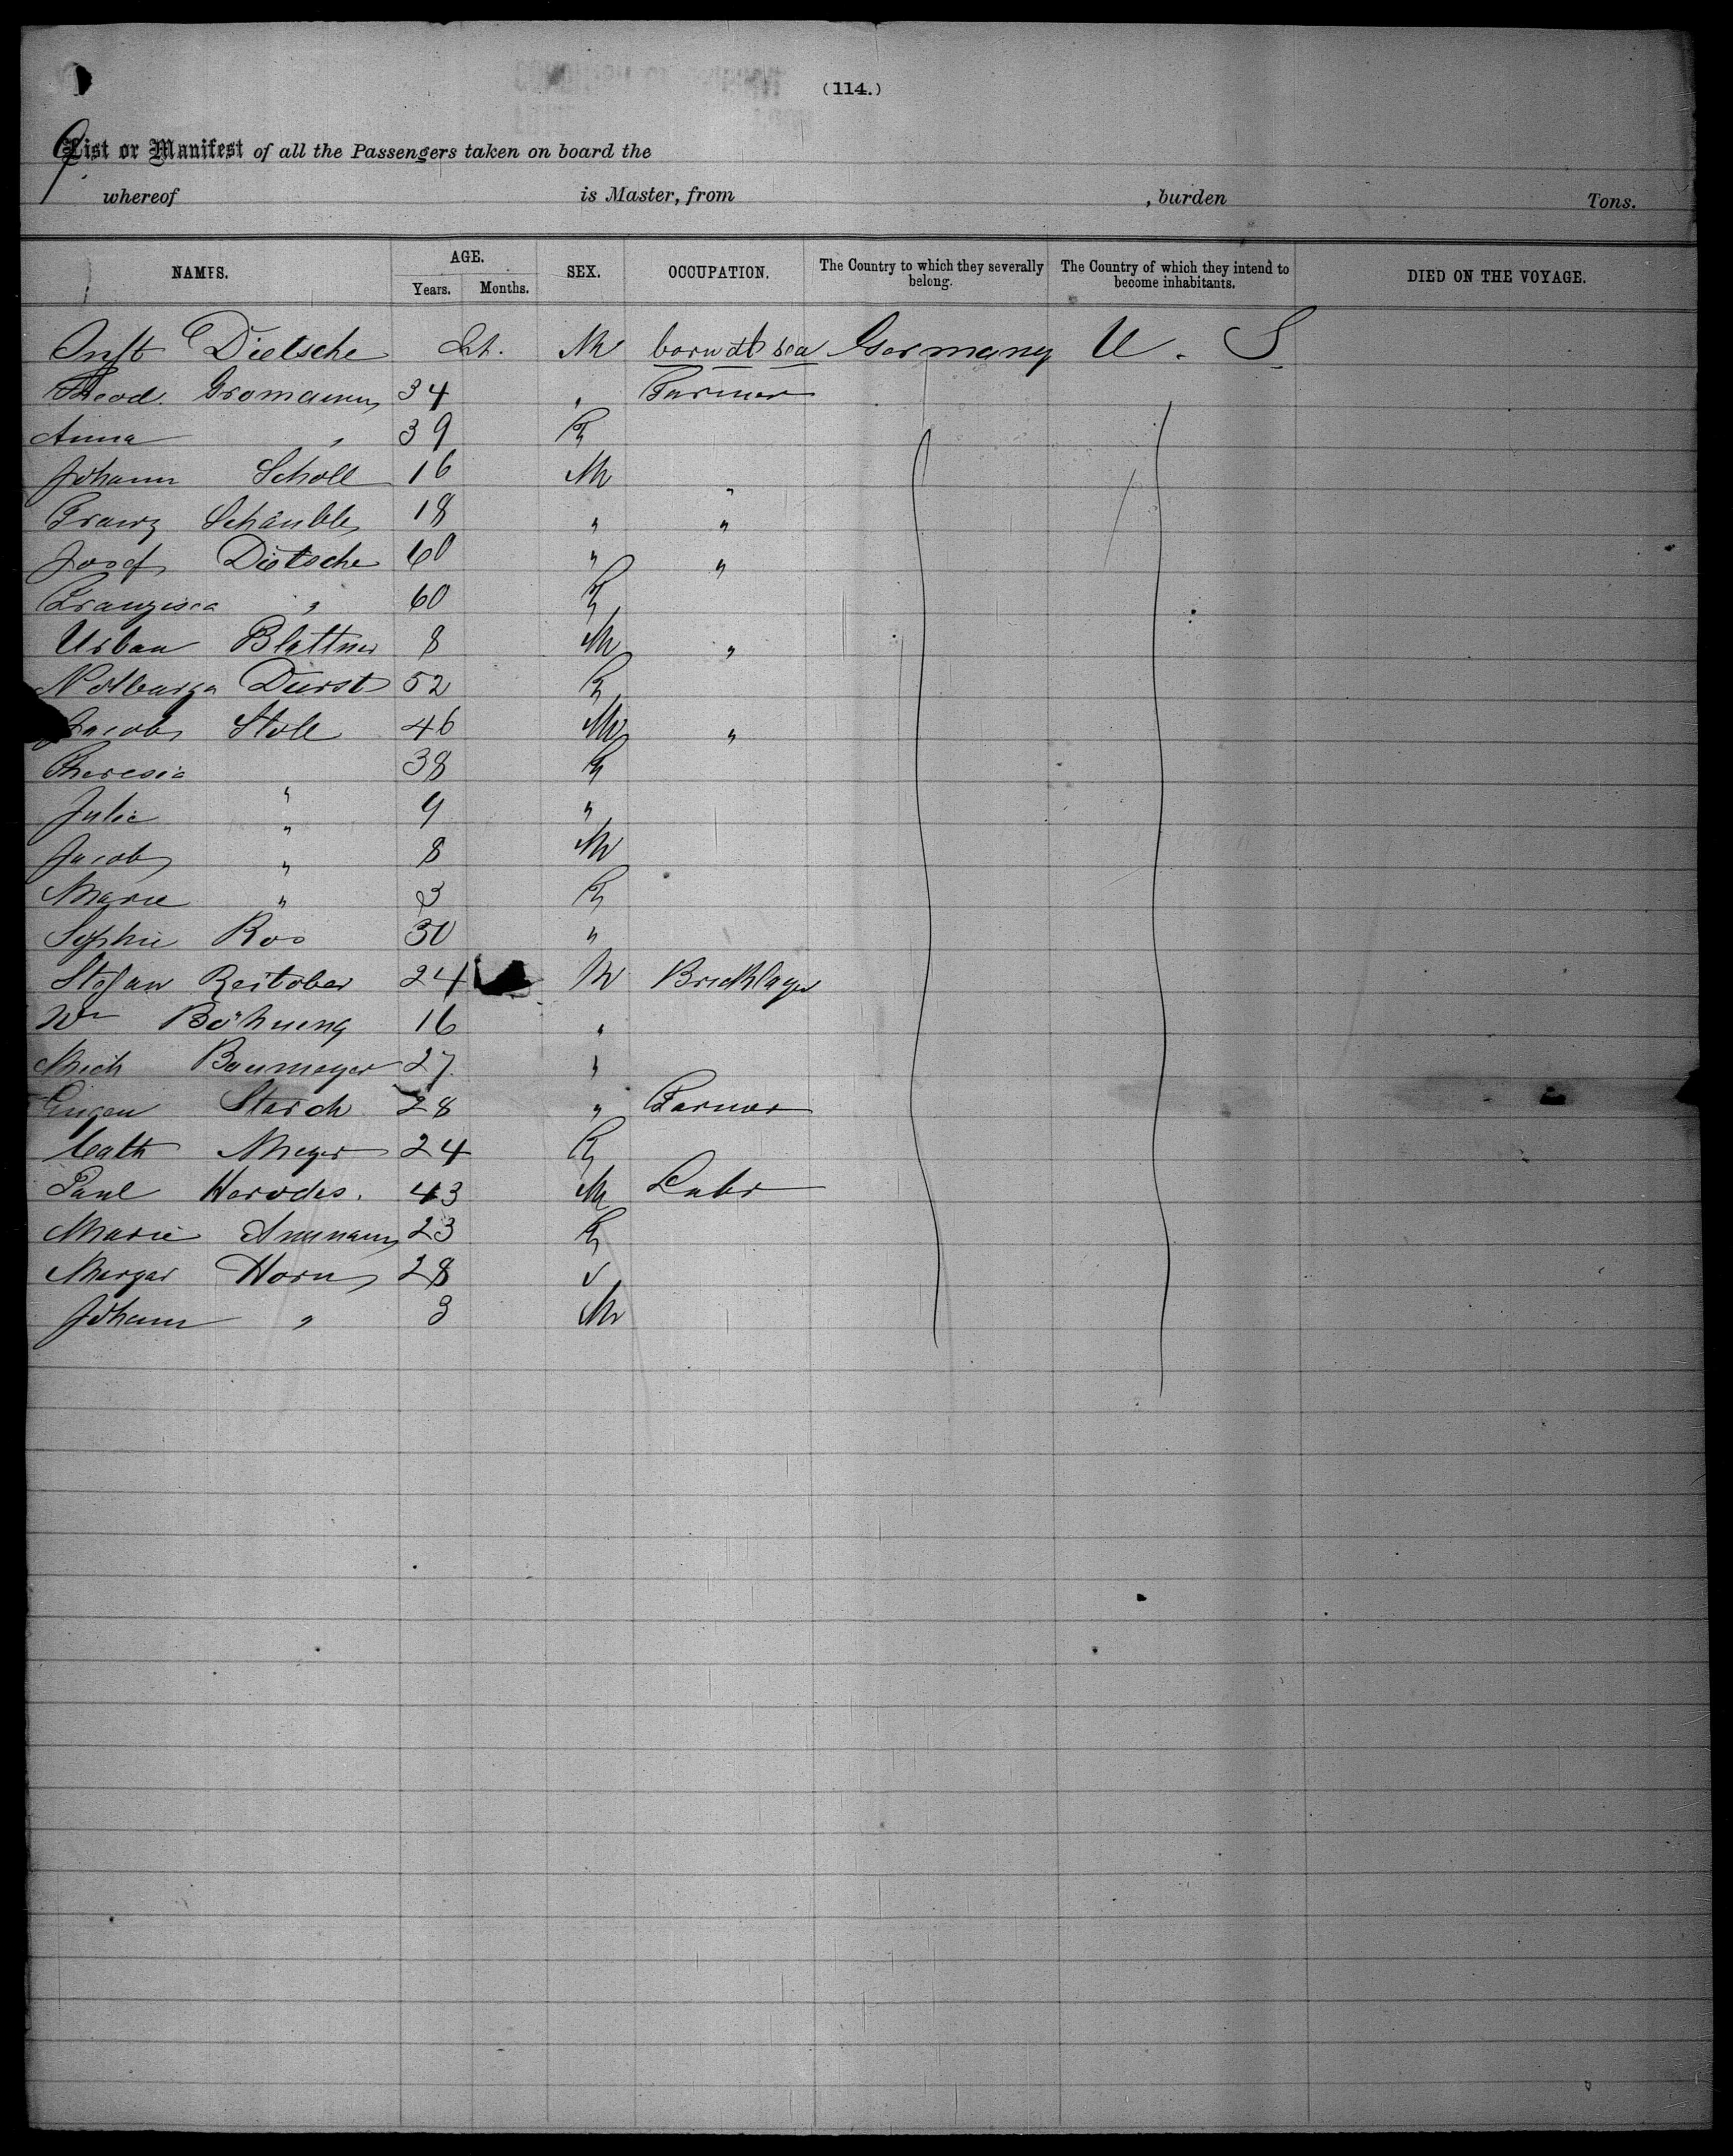 (114.)
9
List or Manifest of all the Passengers taken on board the
whereof is Master, from , burden Tons.
NAMES. AGE. Years. Months. SEX. OCCUPATION. The Country to which they severally belong. The Country of which they intend to become inhabitants. DIED ON THE VOYAGE.
Inft Dietsche Inft. M born at sea Germany U. S
Theod. Gromann 34 " Farmer
Anna " 39 F
Johann Scholl 16 M "
Franz Schäuble 18 " "
Josef Dietsche 60 " "
Franzisca " 60 F
Urban Blattner 8 M "
Notburga Durst 52 F
Jacob Stoll 46 M "
Theresia " 38 F
Julie " 9 "
Jacob " 8 M
Marie " 3 F
Sophie Roo 30 "
Stefan Reitober 24 M Bricklayer
Wm Böhneng 16 "
Mich Baumeyer 27 "
Eugen Starck 28 " Farmer
Cath Meyer 24 F
Paul Herodes. 43 M Labr
Marie Ammann 23 F
Margar Horn 28 "
Johann " 3 M